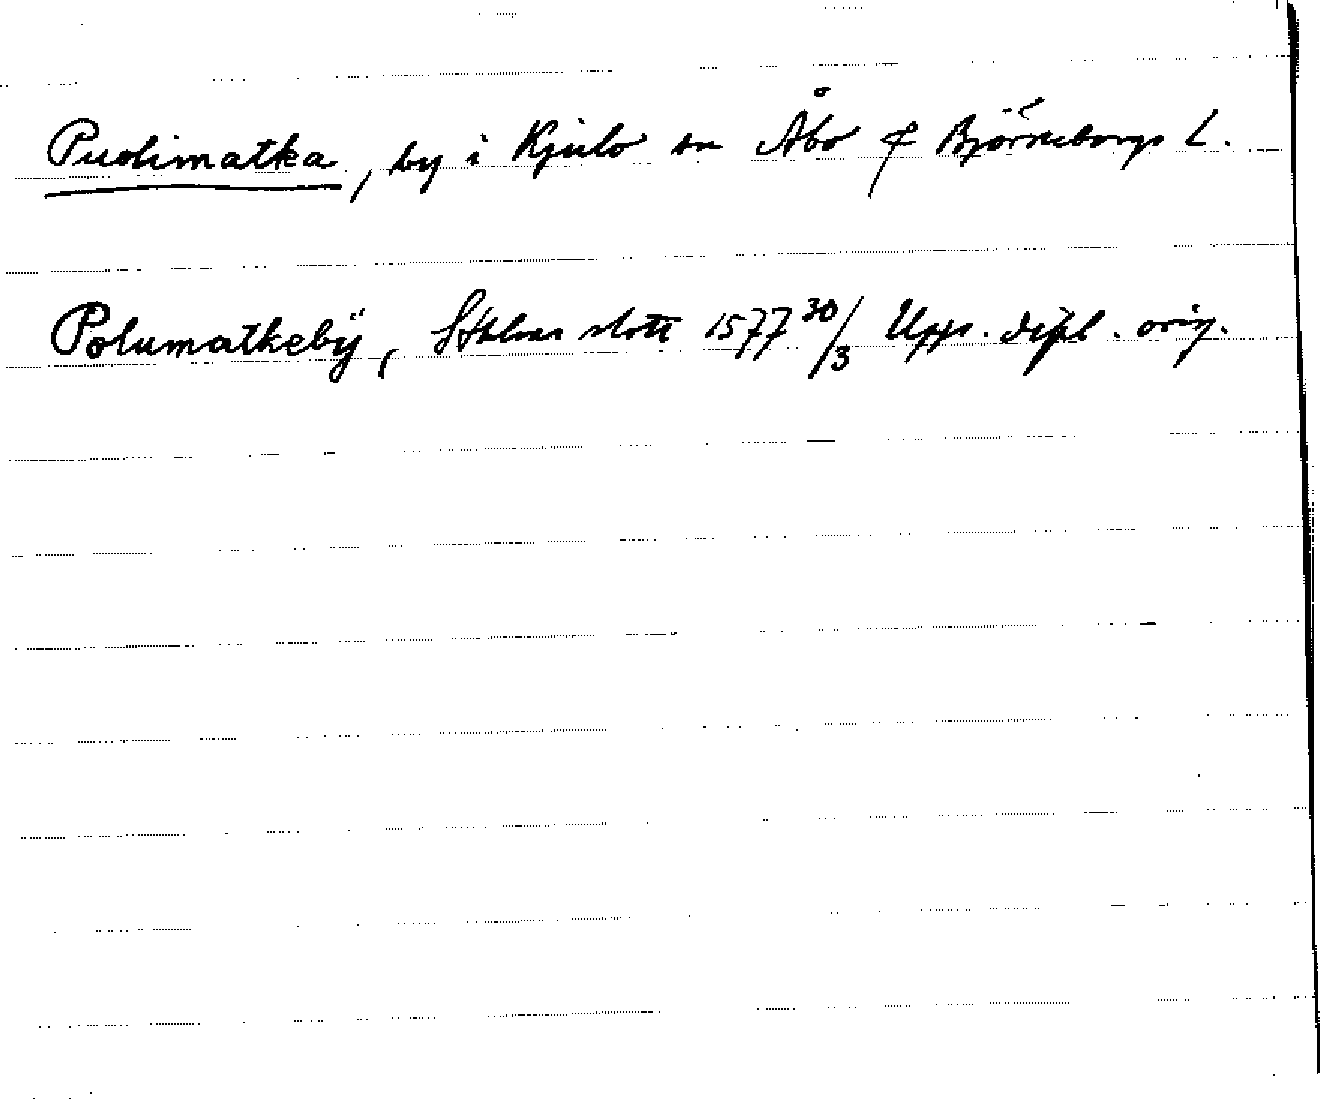 Puolimatka, by i Kjulo sn Åbo & Björneborgs L.
Polumatkebÿ, Sthlms slott 1577 30/3 Upps. dipl. orig.